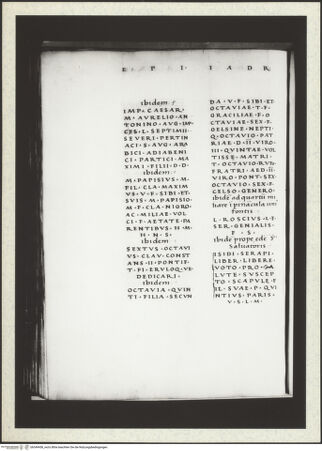 E · P · I · I A D R
Ibidem
IMP · CAESAR ·
M · AVRELIO · AN
TONINO · AVG · IMP
CES · L · SEPTIMII
SEVERI · PERTIN
ACI · S · AVG · ARA
BICI · ADIABENI
CI · PARTICI · MA
XIMI · FILII · D · D
Ibidem
M · PAPISIVS · M ·
FIL · CLA · MAXIM
VS · V · F · SIBI · ET ·
SVIS · M · PAPISIO ·
M · F · CLA · NIGRO ·
AC · MILIAE · VOL
CI · F · AETATE · PA
RENTIBVS · H · M ·
H · N · S ·
Ibidem
SEXTVS · OCTAVI
VS · CLAV · CONST
ANS · II · PONTIF ·
T · FI · ERVLOQ · VE
DEDICARI ·
Ibidem
OCTAVIA · QVIN
TI · FILIA · SECVN
DA · V · F · SIBI · ET ·
OCTAVIAE · T · F ·
GRACILIAE · F · O
CTAVIAE · SEX · F ·
OELSINE · NEPTI ·
Q · OCTAVIO · PAT
RIAE · D · II · VIRO ·
III · QVINTAE · VOL
TISSE · MATRI ·
T · OCTAVIO · RVS ·
FRATRI · AD · II ·
VIRO · PONT · SEX ·
OCTAVIO · SEX · F ·
CELSO · GENERO ·
Ibide ad quartū mi
liare
fonti
L · ROSCIVS · L · F ·
SER · GENIALIS ·
F · S ·
Ibide prope ede S
Saluatoris
ISIDI · SERAPI ·
LIBER · LIBERE ·
VOTO · PRO · SA
LVTE · SVSCEP
TO · SCAPVLE · F
IL · SVAE · P · QVI
NTIVS · PARIS ·
V · S · L · M ·